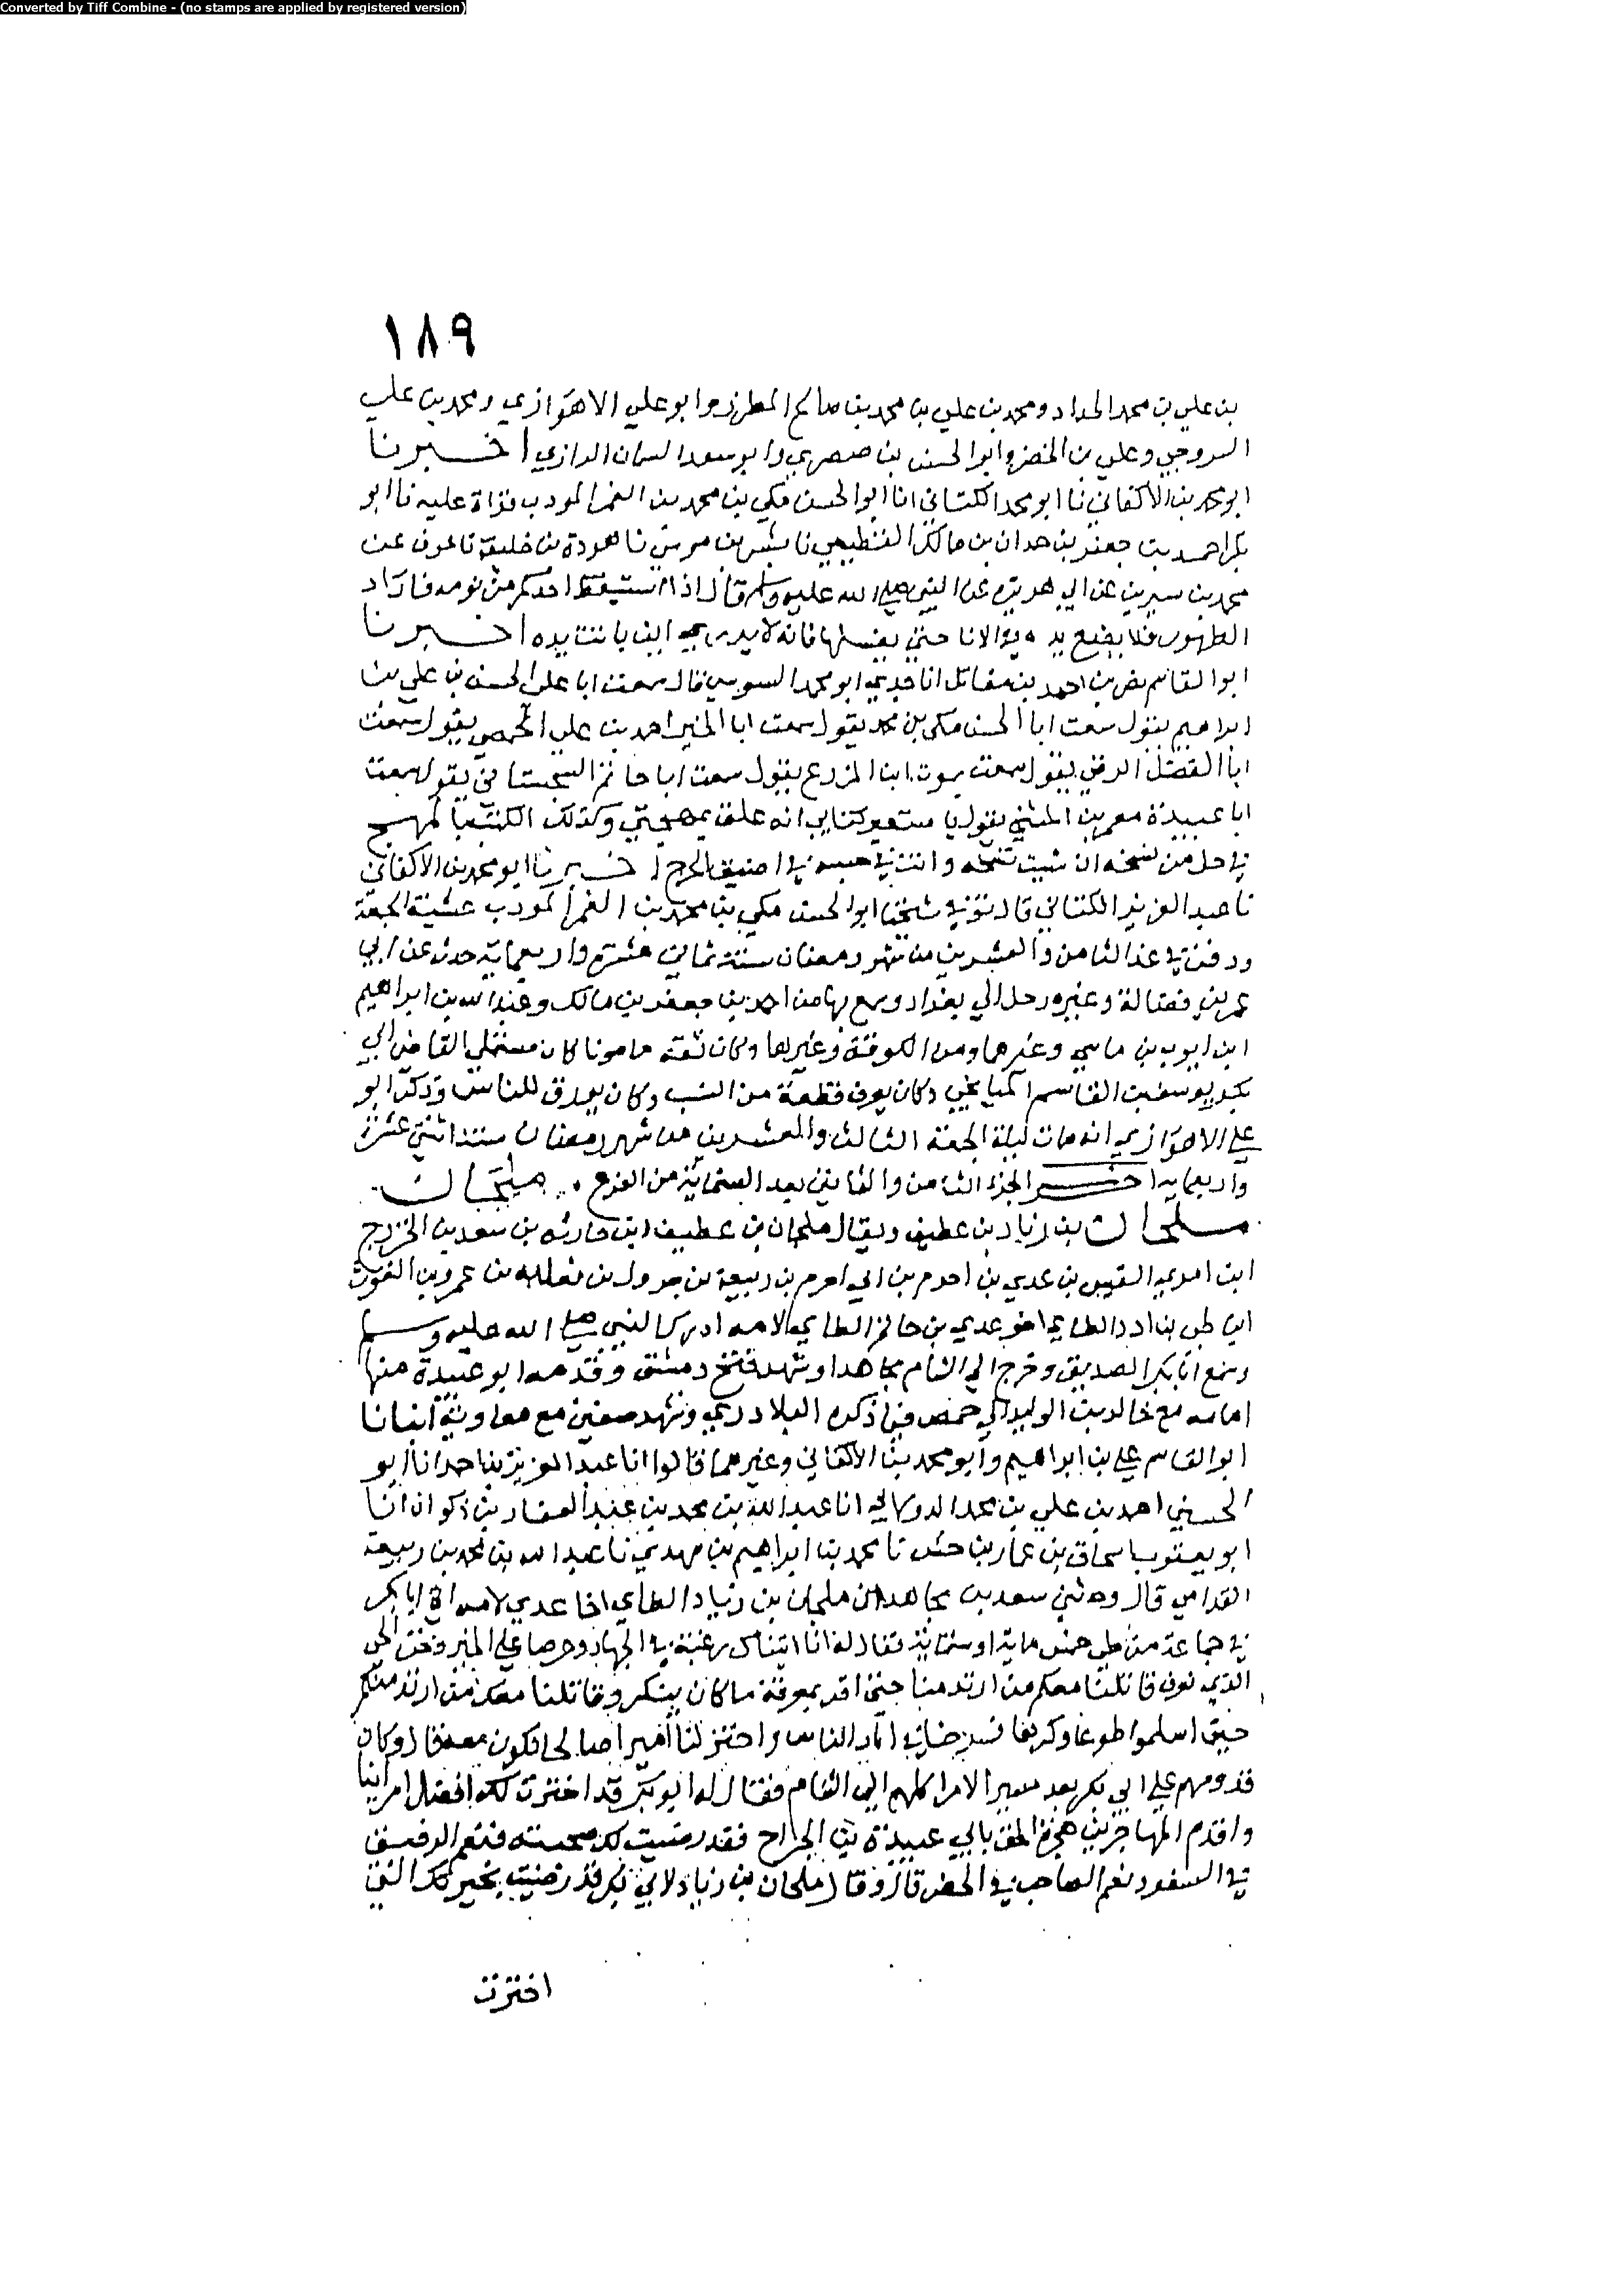 Converted by Tiff Combine - (no stamps are applied by registered version)
١٨٩
بن علي بن محمد الحداد ومحمد بن علي بن محمد بن صالح المطرز وابو علي الاهوازي ومحمد بن علي
السروجي وعلي بن الخضر وابو الحسن بن صصري وابو سعد السمان الرازي اخبرنا
ابو محمد بن الاكفاني نا ابو محمد الكتاني انا ابو الحسن مكي بن محمد بن الغمر المودب قراة عليه نا ابو
بكر احمد بن جعفر بن حمدان بن مالك القطيعي نا بشر بن موسى نا هوذة بن خليفة نا عوف عن
محمد بن سيرين عن ابي هريرة عن النبي صلى الله عليه وسلم قال اذا استيقظ احدكم من نومه فاراد
الطهور فلا يضع يده في الانا حتى يغسلها فانه لا يدري اين باتت يده اخبرنا
ابو القاسم نصر بن احمد بن مقاتل انا جدي ابو محمد السوسي قال سمعت ابا علي الحسن بن علي بن
ابراهيم يقول سمعت ابا الحسن مكي بن محمد يقول سمعت ابا الخير احمد بن علي الحمصي يقول سمعت
ابا الفضل الرقي يقول سمعت يموت ابن المزرع يقول سمعت ابا حاتم السجستاني يقول سمعت
ابا عبيدة معمر بن المثنى يقول يا مستعير كتابي انه علق بمهجتي وكذلك الكتب بالمهج
في حل من نسخه ان شيت تنسخه وانت في حبسه في اضيق الحرج اخبرنا ابو محمد بن الاكفاني
نا عبد العزيز الكتاني قال توفي شيخنا ابو الحسن مكي بن محمد بن الغمر المودب عشية الجمعة
ودفن في غد الثامن والعشرين من شهر رمضان سنة ثماني عشرة واربعماية حدث عن ابي
عمر بن فضالة وغيره ورحل الي بغداد وسمع بها من احمد بن جعفر بن مالك وعبد الله بن ابراهيم
ابن ايوب بن ماسي وغيرهما ومن الكوفة وغيرها وكان ثقة مامونا كان مستملي القاضي ابي
بكر يوسف بن القاسم الميانجي وكان يعرف قطعة من النسب وكان يورق للناس وذكر ابو
علي الاهوازي انه مات ليلة الجمعة الثالث والعشرين من شهر رمضان سنة اثنتي عشرة
واربعماية اخر الجزء الثامن والثمانين بعد الستمائة من الفرع ملحان
ملحان بن زياد بن غطيف ويقال ملحان بن غطيف ابن حارثه بن سعد بن الخزرج
ابن امري القيس بن عدي بن اخزم بن ابي اخزم بن ربيعة بن جرول بن ثعلبه بن عمرو بن الغوث
ابن طي بن ادد الطايي اخو عدي بن حاتم الطايي لامه ادرك النبي صلى الله عليه وسلم
وسمع ابا بكر الصديق وخرج الي الشام مجاهدا وشهد فتح دمشق وقدمه ابو عبيدة منها
امامه مع خالد بن الوليد الي حمص فيما ذكره البلاذري وشهد صفين مع معاوية انبانا
ابو القاسم علي بن ابراهيم وابو محمد بن الاكفاني وغيرهما قالوا انا عبد العزيز بن احمد انا ابو
الحسين احمد بن علي بن محمد الدولابي انا عبد الله بن محمد بن عبد الغفار بن ذكوان انا
ابو يعقوب اسحاق بن عمار بن حش نا محمد بن ابراهيم بن مهدي نا عبد الله بن محمد بن ربيعة
القدامي قال وحدثني سعد بن مجاهد ان ملحان بن زياد الطايي اخا عدي لامه اتى ابا بكر
في جماعة من طي خمس ماية او ستماية فقال له انا اتيناك رغبة في الجهاد وحرصا على الخير ونحن الحي
الذي تعرف قاتلنا معكم من ارتد منا حتى اقر بمعرفة ما كان ينكر وقاتلنا معك من ارتد منكم
حتى اسلموا طوعا وكرها فسرحنا في اثار الناس واختر لنا اميرا صالحا نكون معه قال وكان
قدومهم علي ابي بكر بعد مسير الامرا كلهم الي الشام فقال له ابو بكر قد اخترت لك افضل امراينا
واقدم المهاجرين هجرة الحق بابي عبيدة بن الجراح فقد رضيت لك صحبته فنعم الرفيق
في السفر ونعم الصاحب في الحضر قال وقال ملحان بن زياد لابي بكر قد رضيت بخيرتك التي
اخترت